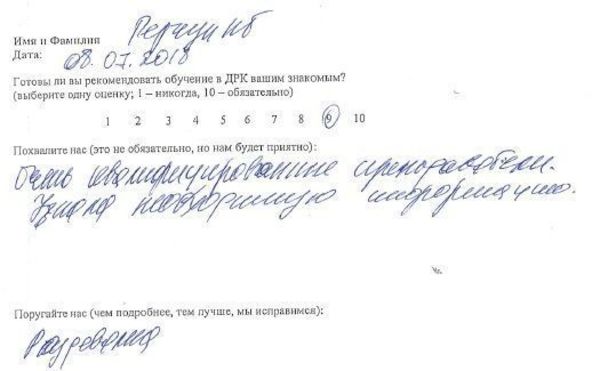 Имя и Фамилия
Дата: 08.07.2018
Готовы ли вы рекомендовать обучение в ДРК вашим знакомым?
(выберите одну оценку; 1 – никогда, 10 – обязательно)
1 2 3 4 5 6 7 8 9 10
Похвалите нас (это не обязательно, но нам будет приятно):
Очень квалифицированные преподаватели.
Узнала необходимую информацию.
Поругайте нас (чем подробнее, тем лучше, мы исправимся):